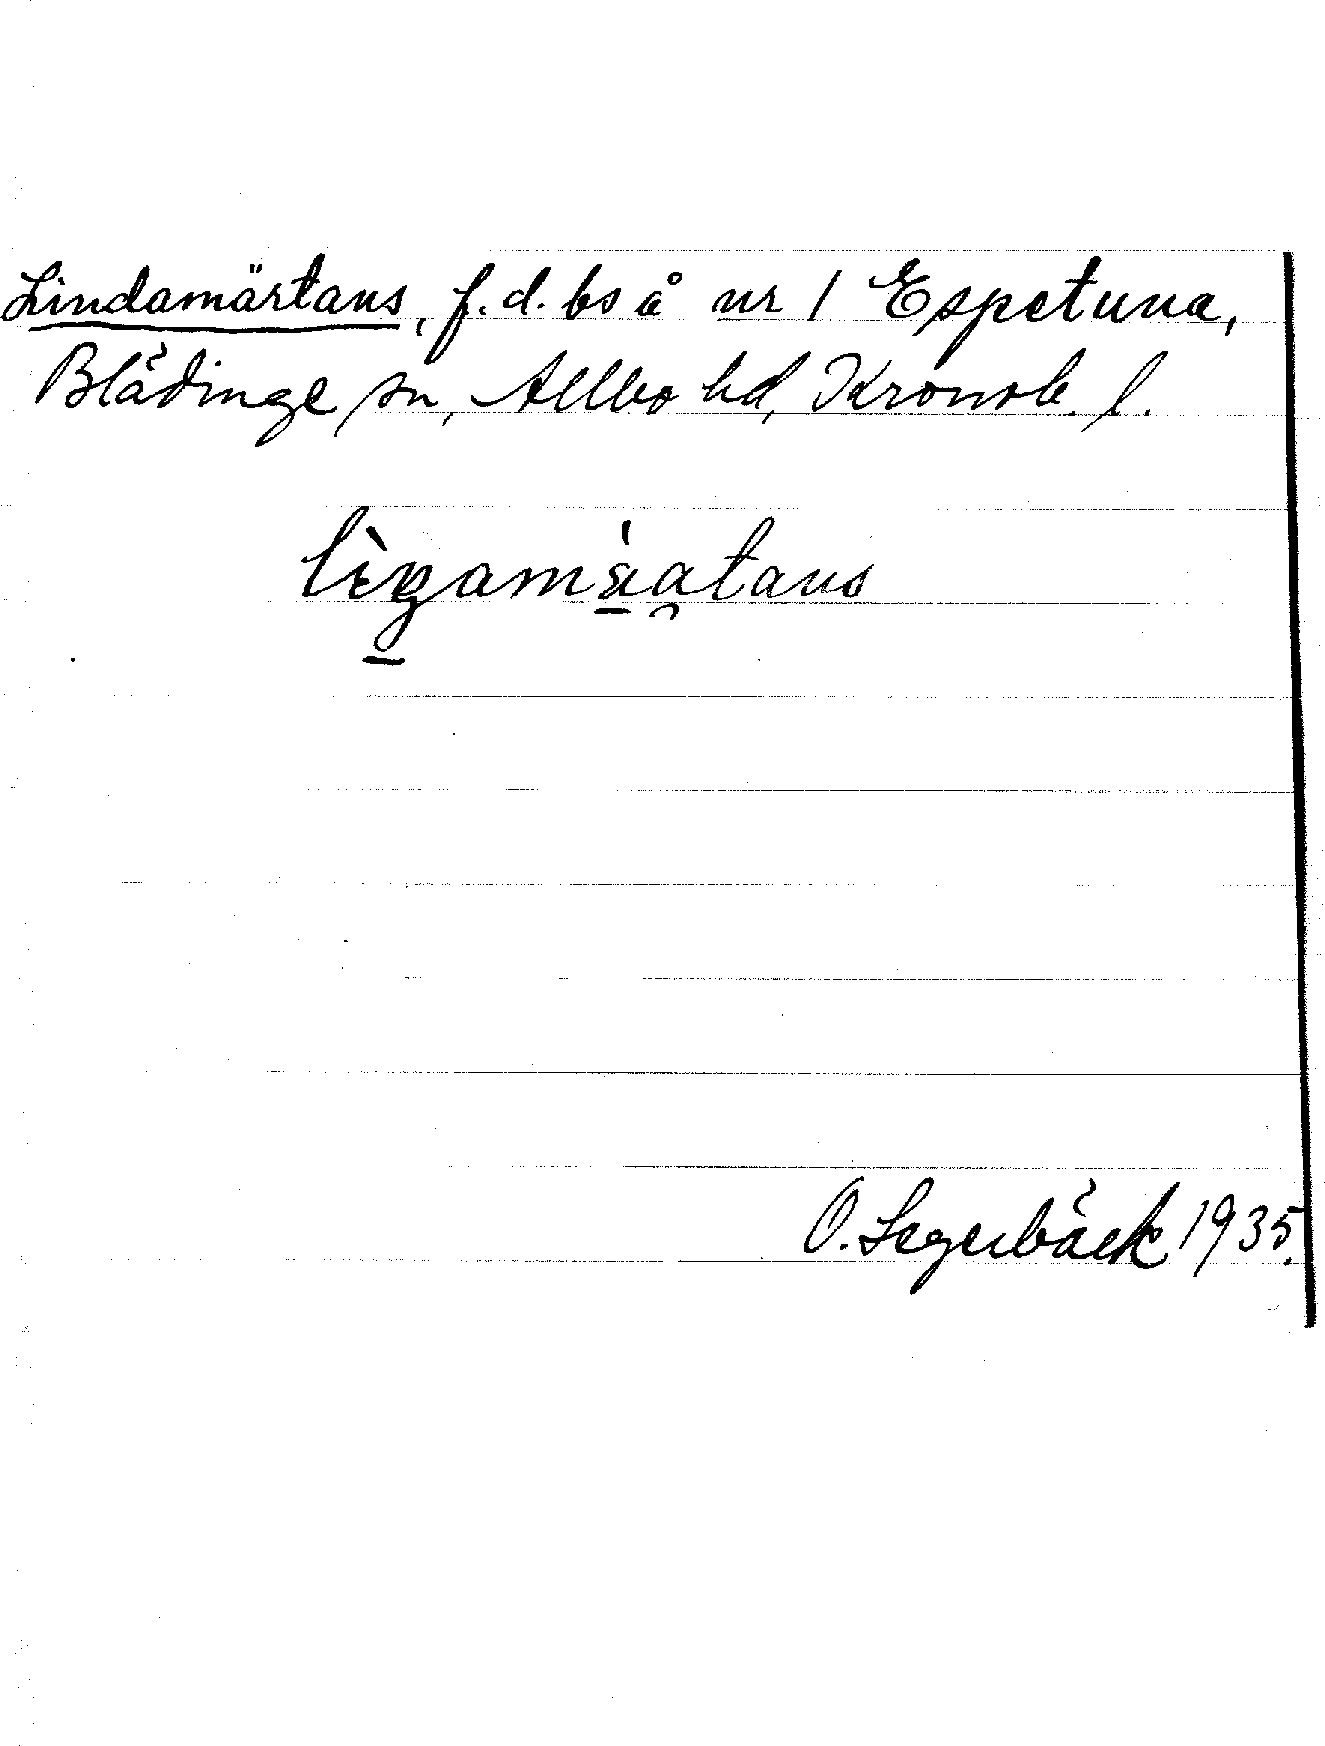 Lindamärtans, f.d. bs å nr 1 Espetuna,
Blädinge sn, Allbo hd, Kronob. l.
O. Segerbäck 1935.